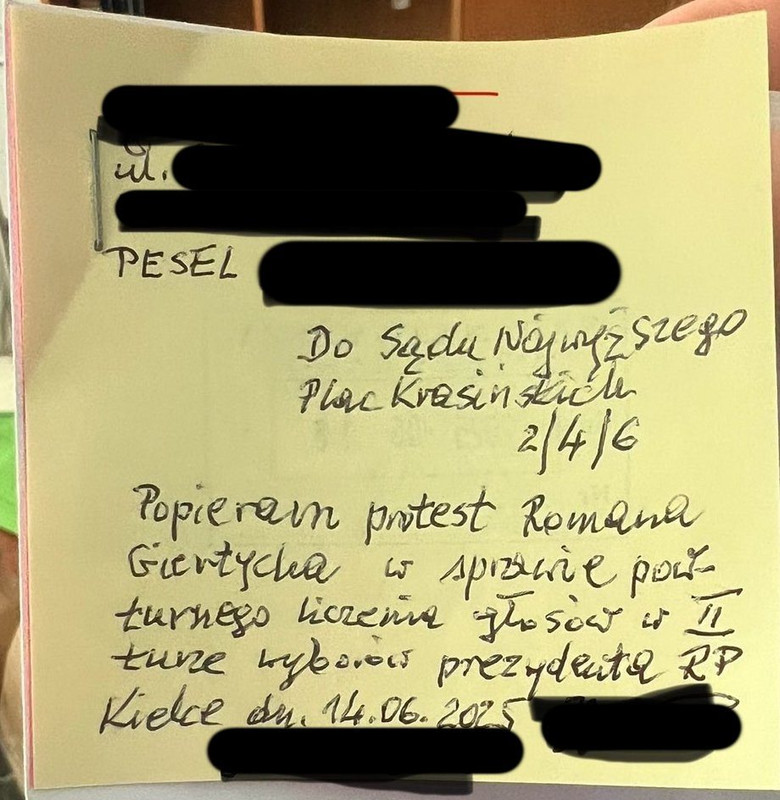 ul.
PESEL
Do Sądu Najwyższego
Plac Krasińskich
2/4/6
Popieram protest Romana
Giertycha w sprawie pow-
turnego liczenia głosów w II
turze wyborów prezydenta RP
Kielce dn. 14.06.2025